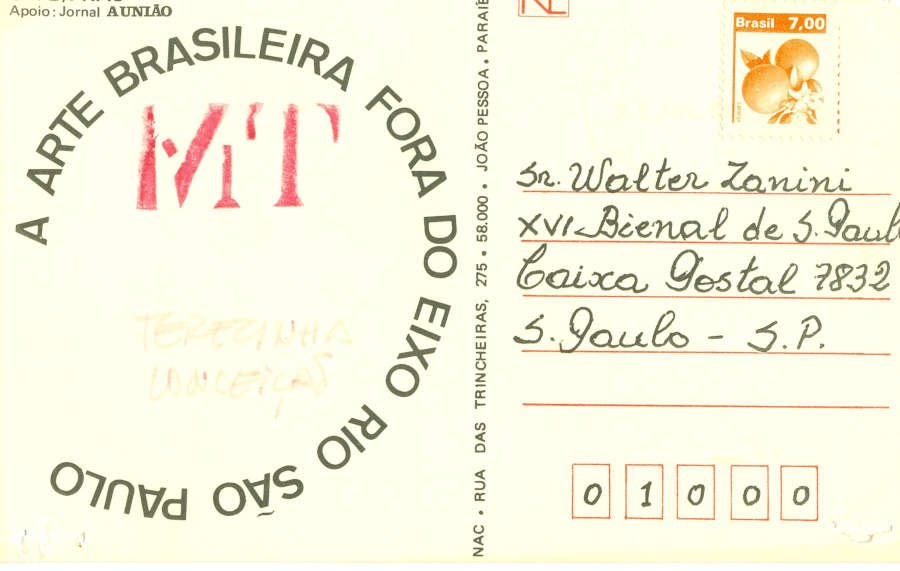 Apoio: Jornal A UNIÃO
A ARTE BRASILEIRA FORA DO EIXO RIO SÃO PAULO
MT
TEREZINHA
CONCEIÇÃO
NAC • RUA DAS TRINCHEIRAS, 275 • 58.000 • JOÃO PESSOA • PARAÍB
Brasil 7,00
Sr. Walter Zanini
XVI Bienal de S. Paulo
Caixa Postal 7832
S. Paulo - S.P.
0 1 0 0 0